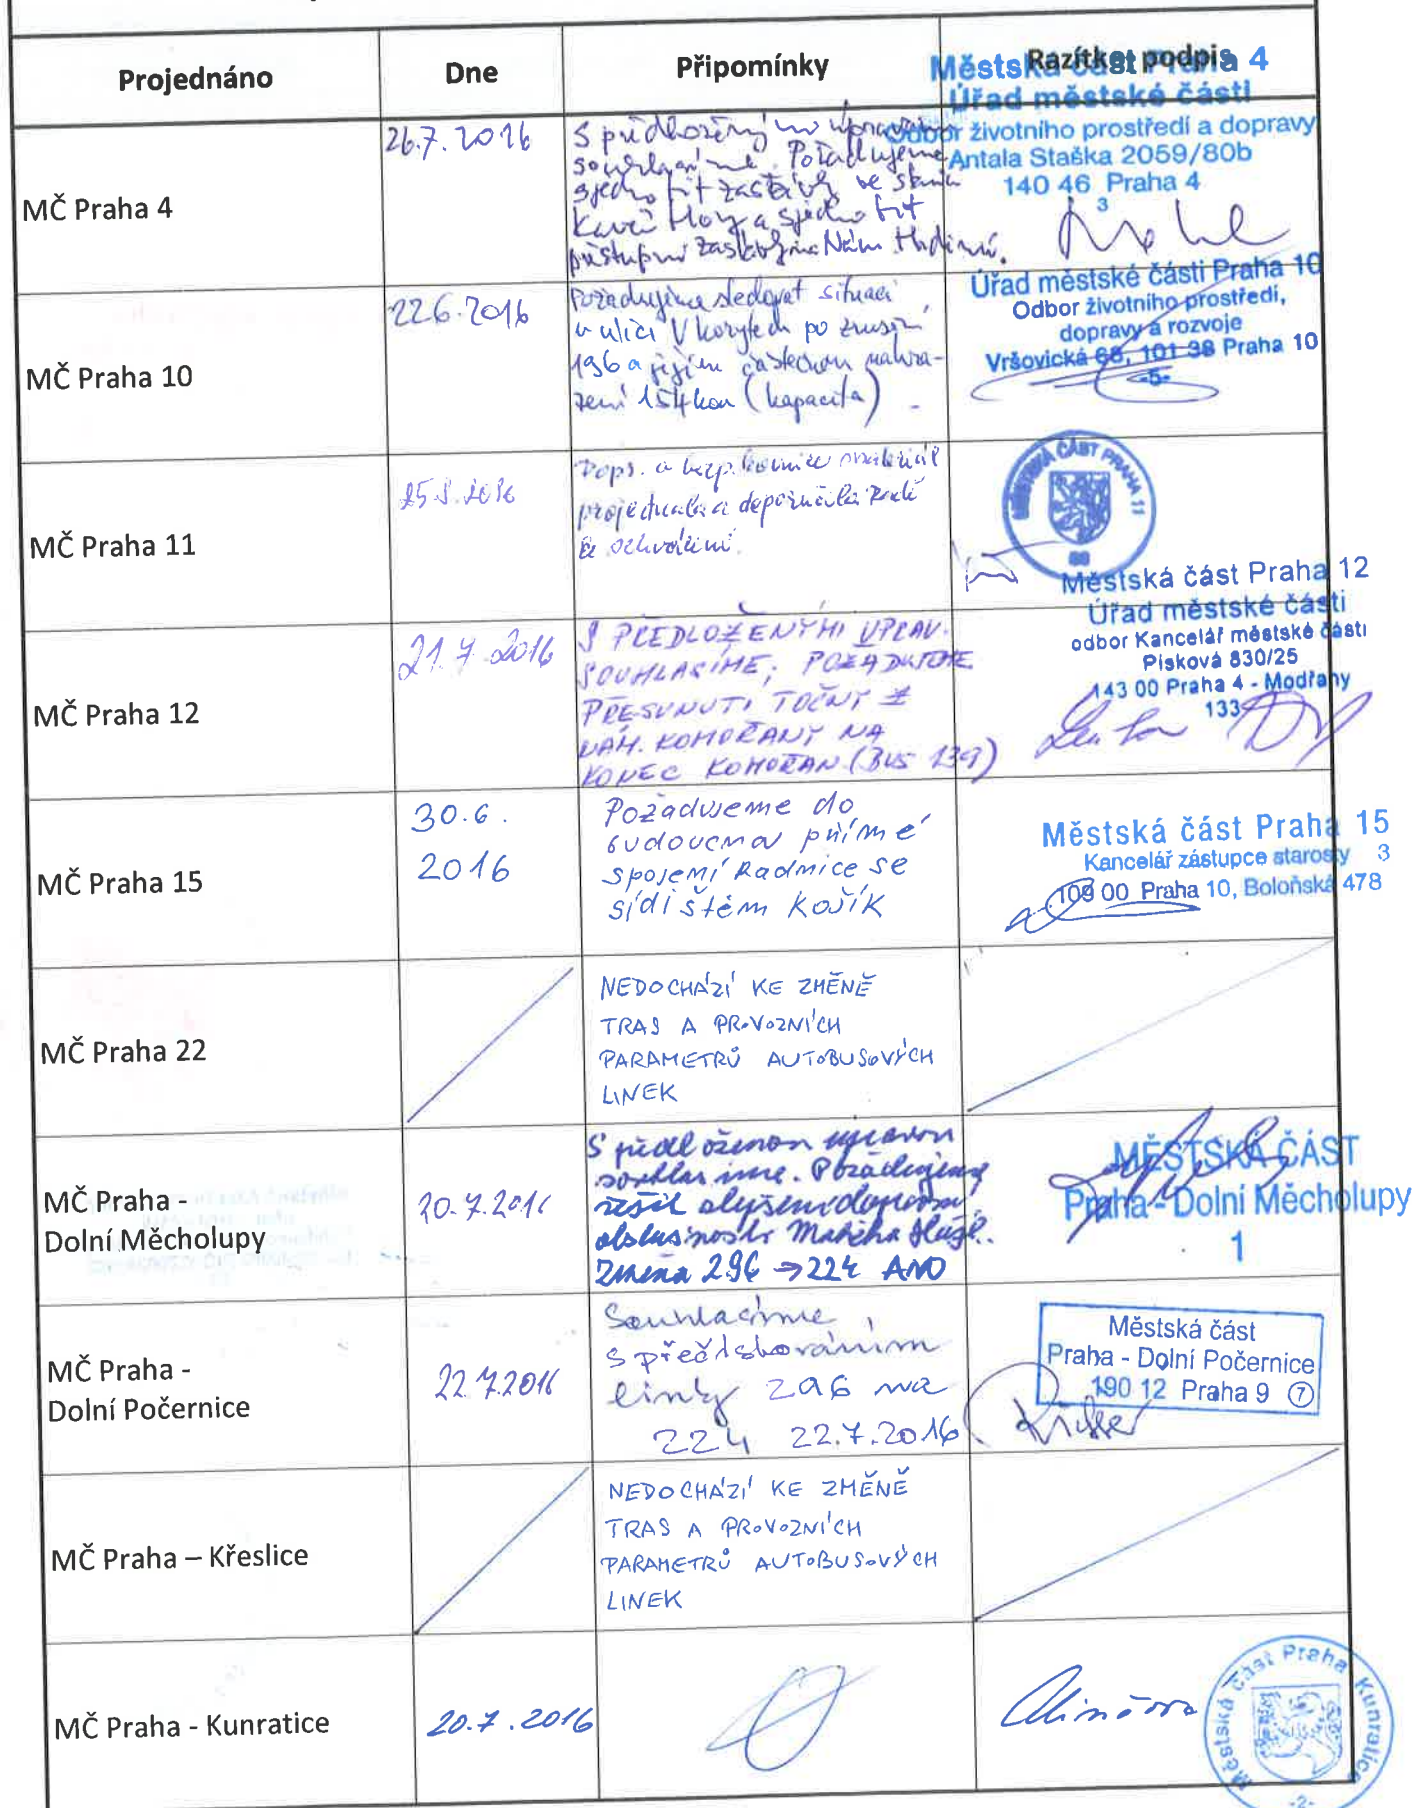 Projednáno Dne Připomínky Razítko a podpis
MČ Praha 4
26.7.2016
S předloženými úpravami
souhlasíme. Požadujeme
sjednotit zastávky ve stanici
Kavčí Hory a sjednotit
přístupni zastávky na Nám. Hrdinů.
Městská část Praha 4
Úřad městské části
Odbor životního prostředí a dopravy
Antala Staška 2059/80b
140 46 Praha 4
3
MČ Praha 10
22.6.2016
Požadujeme sledovat situaci
v ulici V korytech po zrušení
196 a jejím částečnou nahra-
zení 154kou (kapacita)
Úřad městské části Praha 10
Odbor životního prostředí,
dopravy a rozvoje
Vršovická 68, 101 38 Praha 10
-5-
MČ Praha 11
Dopr. a bezp. komise materiál
projednala a doporučila Radě
schválení.
MĚSTSKÁ ČÁST PRAHA 11
MČ Praha 12
21.7.2016
S PŘEDLOŽENÝMI ÚPRAV.
SOUHLASÍME, POŽADUJEME
PŘESUNUTÍ TOČNY Z
NÁM. KOMOŘANY NA
KONEC KOMOŘAN (BUS 139)
Městská část Praha 12
Úřad městské části
odbor Kancelář městské části
Písková 830/25
143 00 Praha 4 - Modřany
133
MČ Praha 15
30.6.
2016
Požadujeme do
budoucna přímé
spojení Radnice se
sídlištěm Košík
Městská část Praha 15
Kancelář zástupce starosty 3
109 00 Praha 10, Boloňská 478
MČ Praha 22
NEDOCHÁZÍ KE ZMĚNĚ
TRAS A PROVOZNÍCH
PARAMETRŮ AUTOBUSOVÝCH
LINEK
MČ Praha -
Dolní Měcholupy
20.7.2016
S předloženou úpravou
souhlasíme. Požadujeme
řešit zlepšení dopravní
obslužnosti Malého Háje.
Změna 296 → 224 ANO
MĚSTSKÁ ČÁST
Praha - Dolní Měcholupy
1
MČ Praha -
Dolní Počernice
22.7.2016
Souhlasíme
s přečíslováním
linky 296 na
224 22.7.2016
Městská část
Praha - Dolní Počernice
190 12 Praha 9 7
MČ Praha – Křeslice
NEDOCHÁZÍ KE ZMĚNĚ
TRAS A PROVOZNÍCH
PARAMETRŮ AUTOBUSOVÝCH
LINEK
MČ Praha - Kunratice
20.7.2016
Městská část Praha Kunratice
-2-